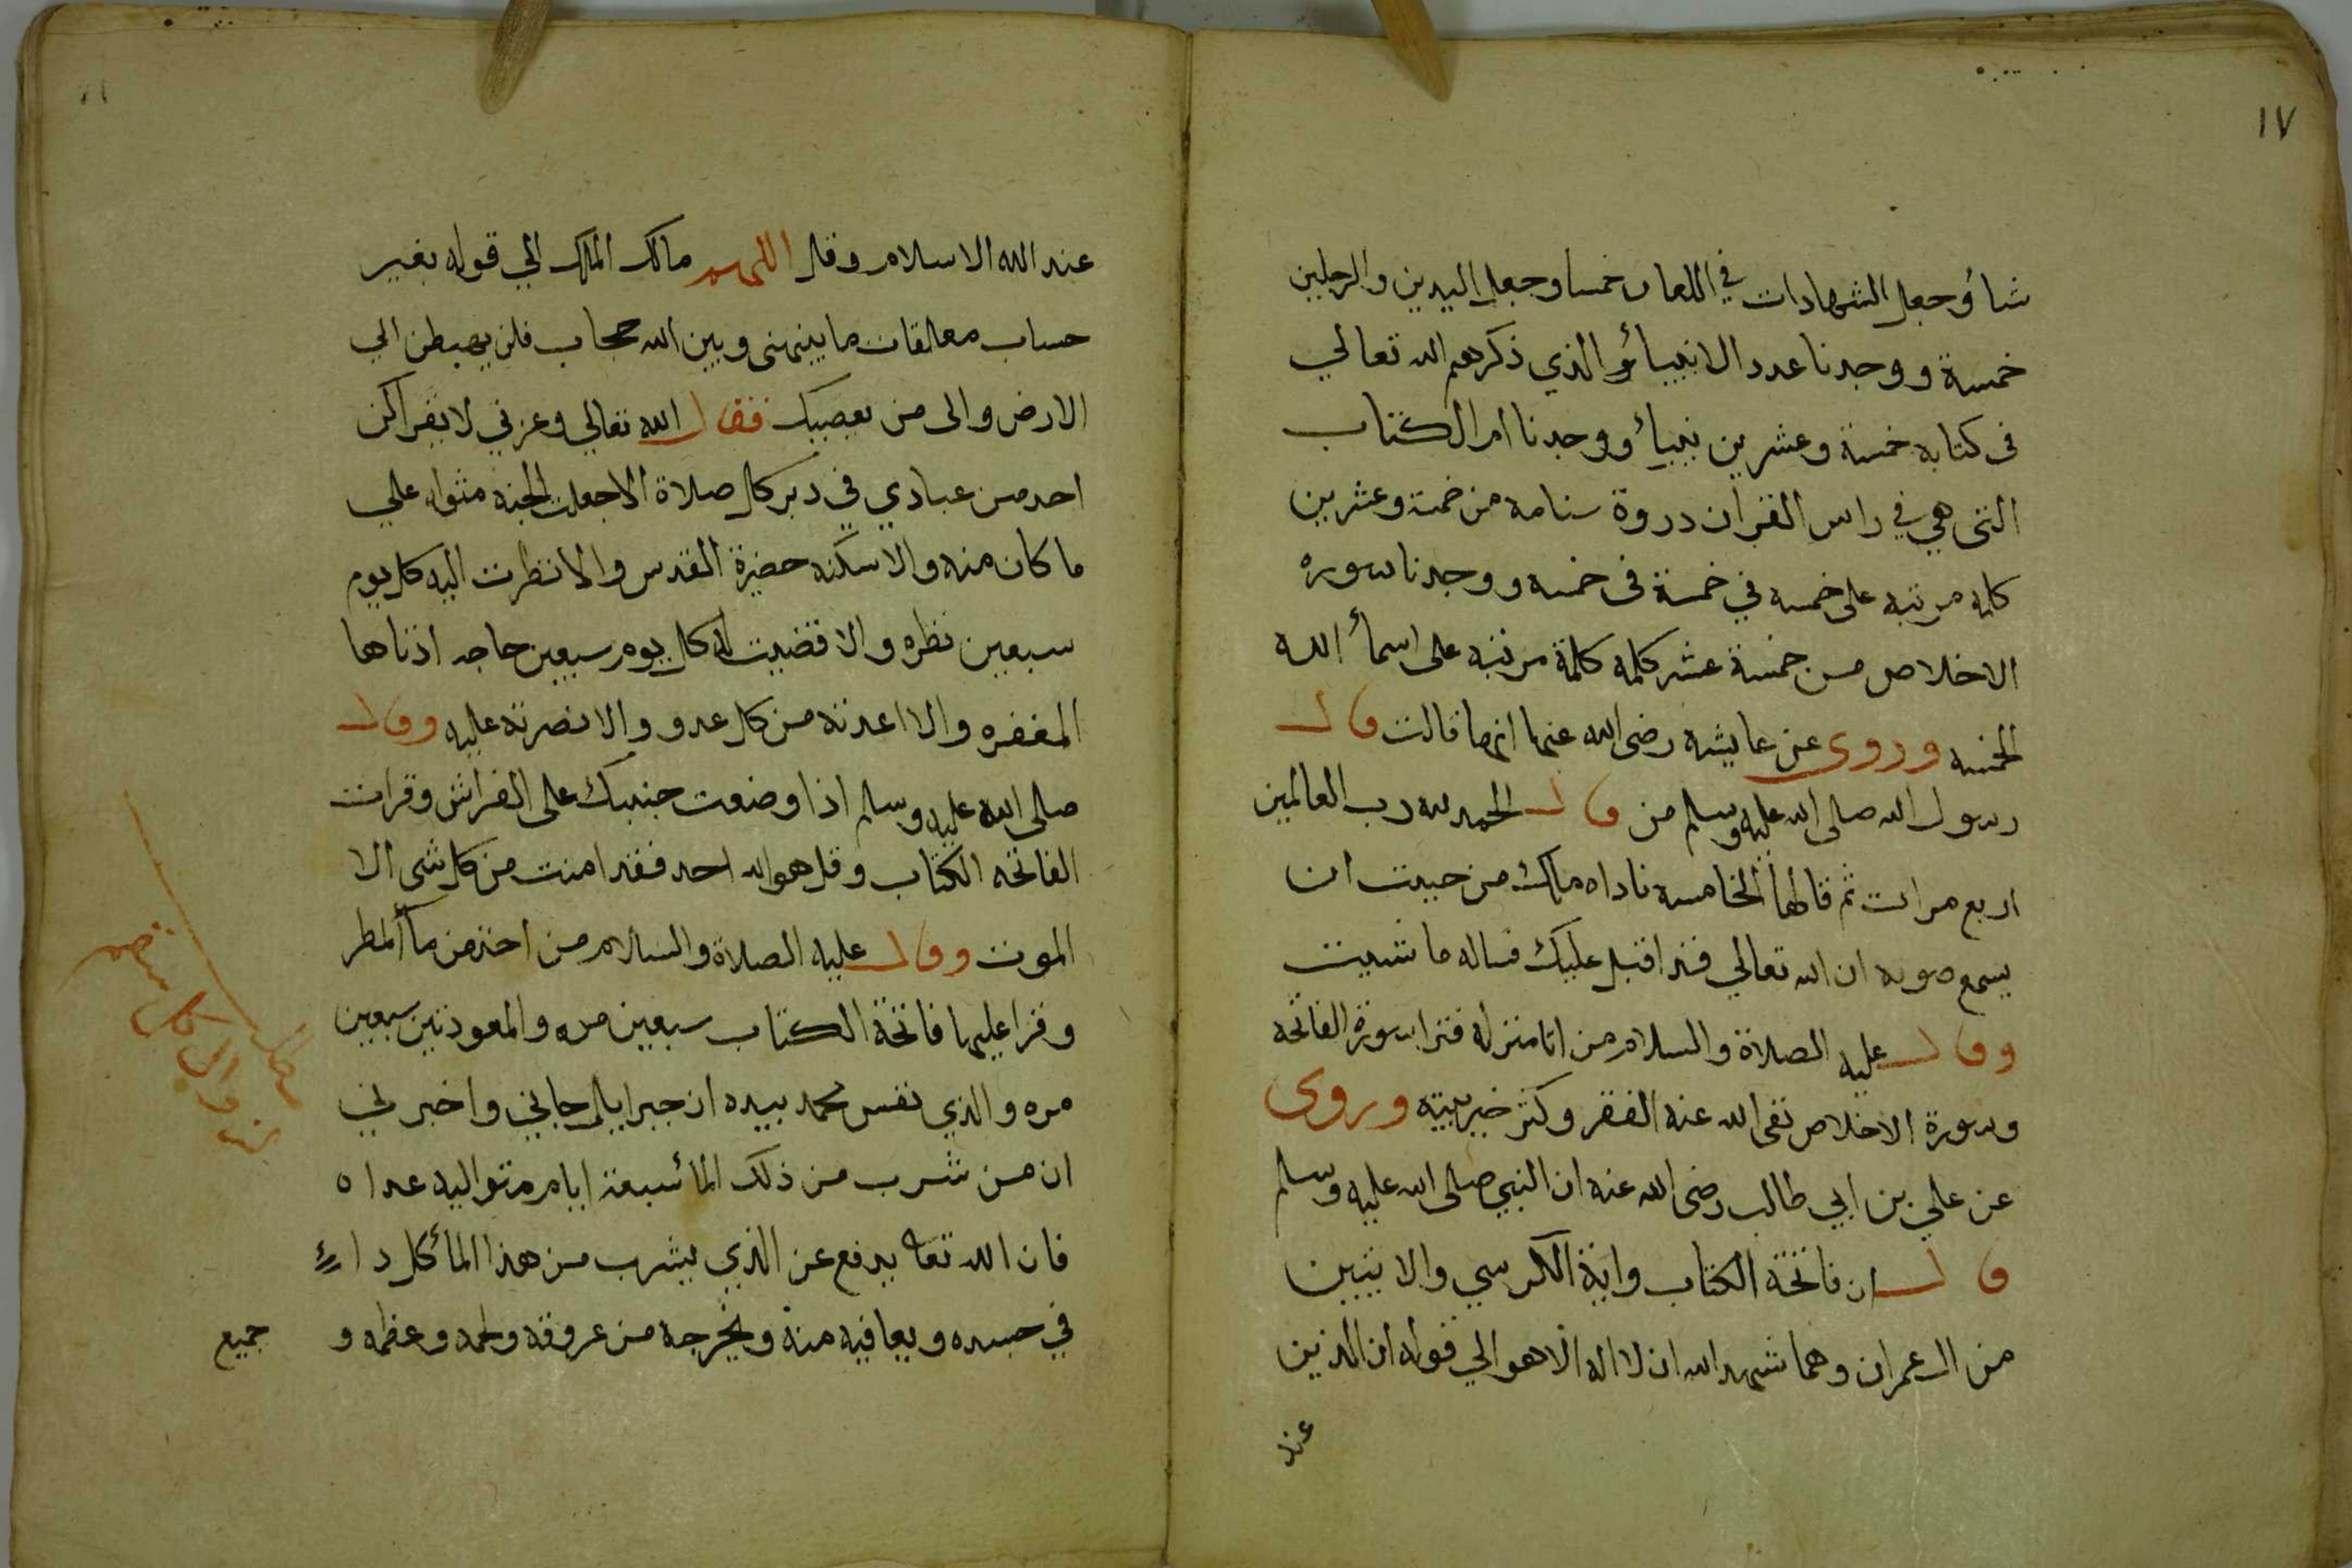 ١٧
شاؤ وجعل الشهادات في اللعان خمسا وجعل اليدين والرجلين
خمسة ووجدنا عدد الانبياؤ الذي ذكرهم الله تعالي
في كتابه خمسة وعشرين نبيا ووجدنا ام الكتاب
التي هي في راس القران دروة سنامه من خمسة وعشرين
كلمه مرتبه على خمسه في خمسة في خمسه ووجدنا سوره
الاخلاص من خمسة عشر كلمه كلمة مرتبه على اسمأ الله
الخمسه وروى عن عايشه رضى الله عنها انها قالت قال
رسول الله صلى الله عليه وسلم من قال الحمد لله رب العالمين
اربع مرات ثم قالها الخامسه ناداه ملك من حيث ان
يسمع صوته ان الله تعالي قد اقبل عليك فساله ما شيت
وقال عليه الصلاة والسلام من اتا منزله فقرا سورة الفاتحه
وسورة الاخلاص نفى الله عنه الفقر وكثر خير بيته وروى
عن علي بن ابي طالب رضى الله عنه ان النبي صلى الله عليه وسلم
قال ان فاتحة الكتاب واية الكرسي والايتين
من ال عمران وهما شهد الله ان لا اله الا هو الي قوله ان الدين
عند
عند الله الاسلام وقل اللهم مالك الملك الي قوله بغير
حساب معلقات ما بينهن وبين الله حجاب قلن يهبطن الي
الارض والى من يعصيك فقال الله تعالي وعزتي لا يقراكن
احد من عبادي في دبر كل صلاة الا جعلت الجنه مثواه علي
ما كان منه والا سكنه حضيرة القدس والا نظرت اليه كل يوم
سبعين نظره والا قضيت له كل يوم سبعين حاجه ادناها
المغفره والا اعدته من كل عدو والا نصرته عليه وقال
صلى الله عليه وسلم اذا وضعت جنبك على الفراش وقرات
الفاتحه الكتاب وقل هو الله احد فقد امنت من كل شى الا
الموت وقال عليه الصلاة والسلام من اخذ من مأ المطر
وقرا عليها فاتحة الكتاب سبعين مره والمعوذتين سبعين
مره والذي نفس محمد بيده ان جبرايل جاني واخبرني
ان من شرب من ذلك المأ سبعة ايام متواليه غداه
فان الله تعا يدفع عن الذي يشرب من هذا المأ كل داء
في جسده ويعافيه منه ويخرجه من عروقه ولحمه وعظمه و
جميع